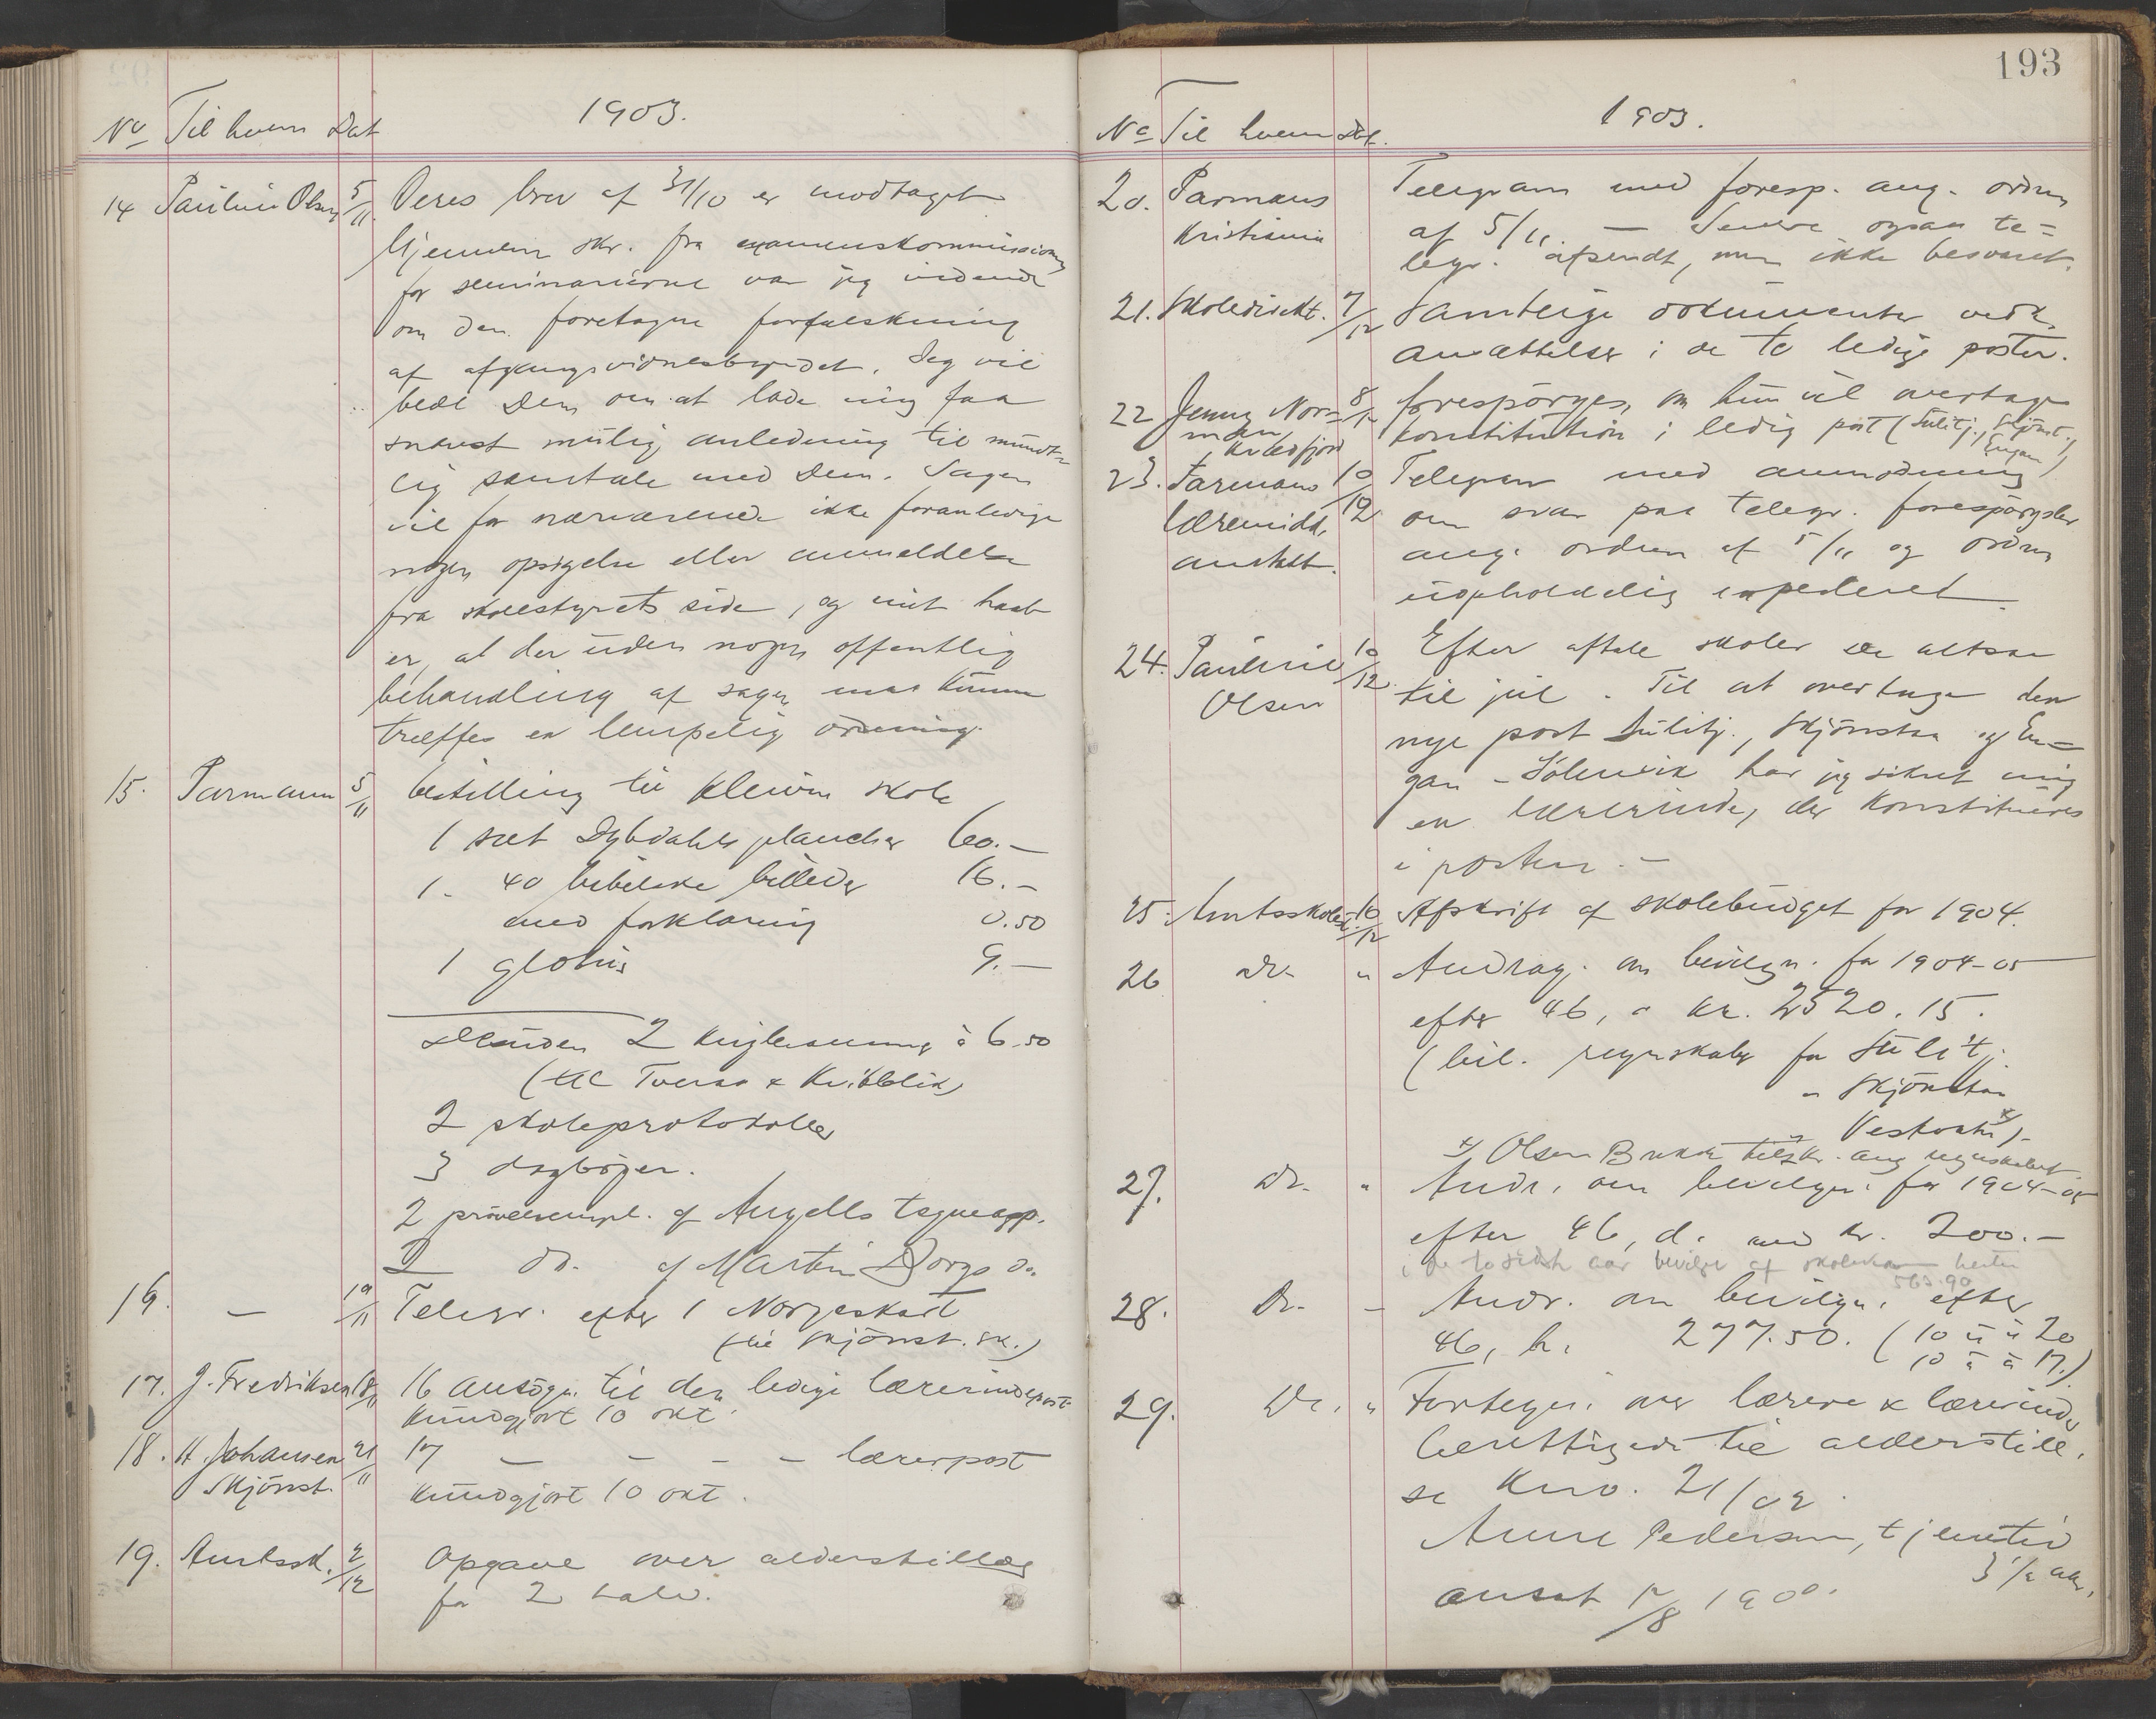 1903.
No Til hvem Dat
14 Pauline Olsen 5/11 Deres brev af 31/10 er modtaget
Gjennem skr. fra examenskommissionen
for seminarierne var jeg vidende
om den foretagne forfalskning
af afgangsvidnesbyrdet. Jeg vil
bede Dem om at lade mig faa
snarest mulig anledning til mundt-
lig samtale med Dem. Sagen
vil for nærværende ikke foranledige
nogen opsigelse eller anmeldelse
fra skolestyrets side, og mit haab
er, at der uden nogen offentlig
behandling af sagen maa kunne
træffes en lempelig ordning.
15. Parmann 5/11 bestilling til Kleiva skole
1 sæt Dybdahls plancher 60.-
1 - 40 bibelske billeder 16.-
med forklaring 0.50
1 globus 9.-
Desuden 2 kugleramme à 6.50
(til Tveraa & Kvibblik)
2 skoleprotokoller
3 dagbøger.
2 prøveexempl. af Angells tegneapp.
2 do. af Martin Borgs do.
16. - 19/11 Telegr. efter 1 Norgeskart
(til Skjønst. sk.)
17. J. Fredriksen 18/11 16 ansøgn. til den ledige lærerindepost
kundgjort 10 okt.
18. H. Johansen 21/11 17 - - - - lærerpost
Skjønst. kundgjort 10 okt.
19. Amtssk. 2/12 Opgave over alderstillæg
for 2 halv.
193
1903.
No Til hvem Dat.
20. Parmans Telegram med foresp. ang. ordren
Kristiania af 5/11 - Senere ogsaa te-
legr. afsendt, men ikke besvaret.
21. Skoledirekt. 7/12 Samtlige dokumenter vedk.
ansættelser i de to ledige poster.
22 Jenny Nor- 8/12 forespørges, om hun vil overtage
man konstitution i ledig post (Sulitj., Skjønst.,
Engan)
23. Parmans 10/12 Telegram med anmodning
læremidd. om svar paa telegr. forespørgsler
anstalt. ang. ordren af 5/11 og ordren
uopholdelig expederet.
24. Pauline 10/12 Efter aftale skoler De altsaa
Olsen til jul. Til at overtage den
nye post Sulitj., Skjønstaa og En-
gan - Sølvvik har jeg sikret mig
en lærerinde, der konstitueres
i posten. -
25. Amtsskolest. 10/12 Afskrift af skolebudget for 1904.
26 do. " Andrag. om bevilgn. for 1904-05
efter 46, a kr. 2520.15.
(bil. regnskaber for Sulitj.
" Skjønstaa
" Vestvatn x) -
x) Olsen Bakke tilskr. ang regnskabet
27. Do. " Andr. om bevilgn. for 1904-05
efter 46, d. med kr. 200.-
i de to sidste aar bevilget af skolekassen
563.90
28. Do. - Andr. om bevilgn. efter
46, h. 277.50. (10 u à 20
10 u à 17.)
29. Do. " Fortegn. over lærere & lærerinder
berettigede til alderstill.
se Kno. 21/02.
Anne Pedersen, tjenestetid
3 1/2 aar,
ansat 12/8 1900.